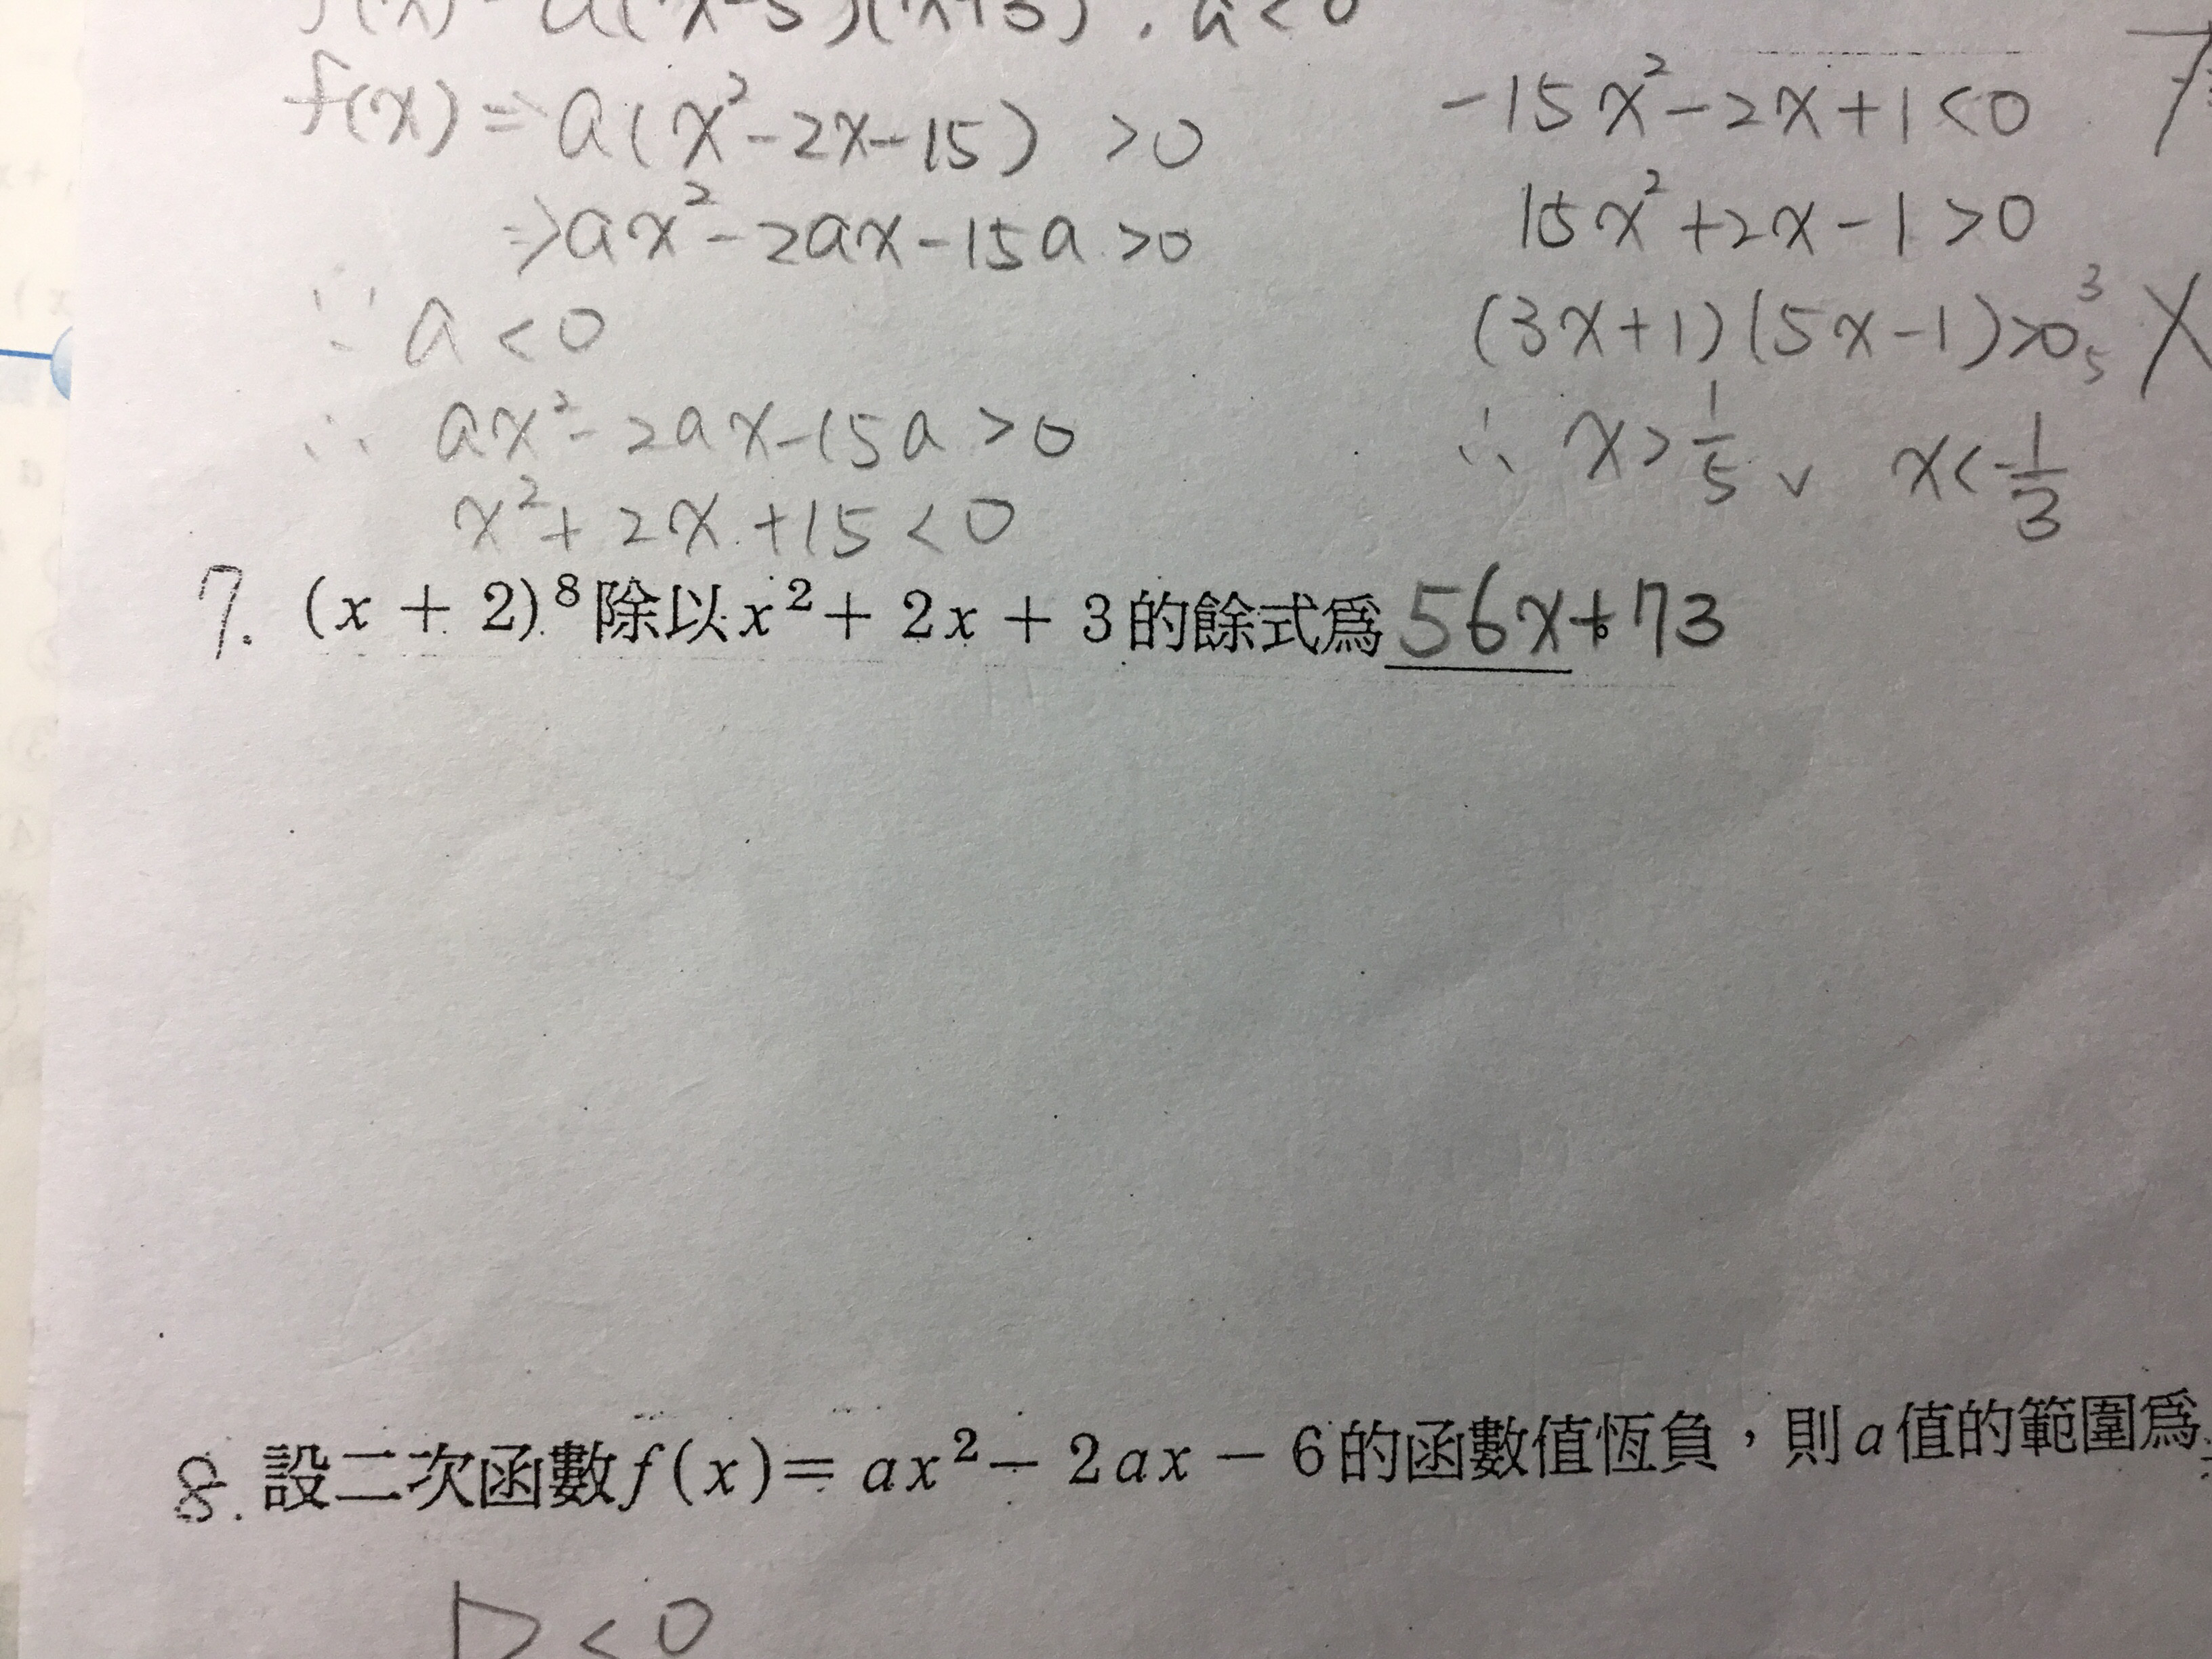 f(x) = a(x-5)(x+3), a<0
f(x) ⇒ a(x²-2x-15) >0
⇒ax²-2ax-15a>0
∵ a<0
∴ ax²-2ax-15a>0
x²+2x+15<0
-15x²-2x+1<0
15x²+2x-1>0
(3x+1)(5x-1)>0
∴ x>1/5 ∨ x<-1/3
7. (x + 2)⁸除以x²+ 2x + 3的餘式爲56x+73
8. 設二次函數f(x)= ax²- 2ax - 6的函數值恆負,則a值的範圍爲
D<0